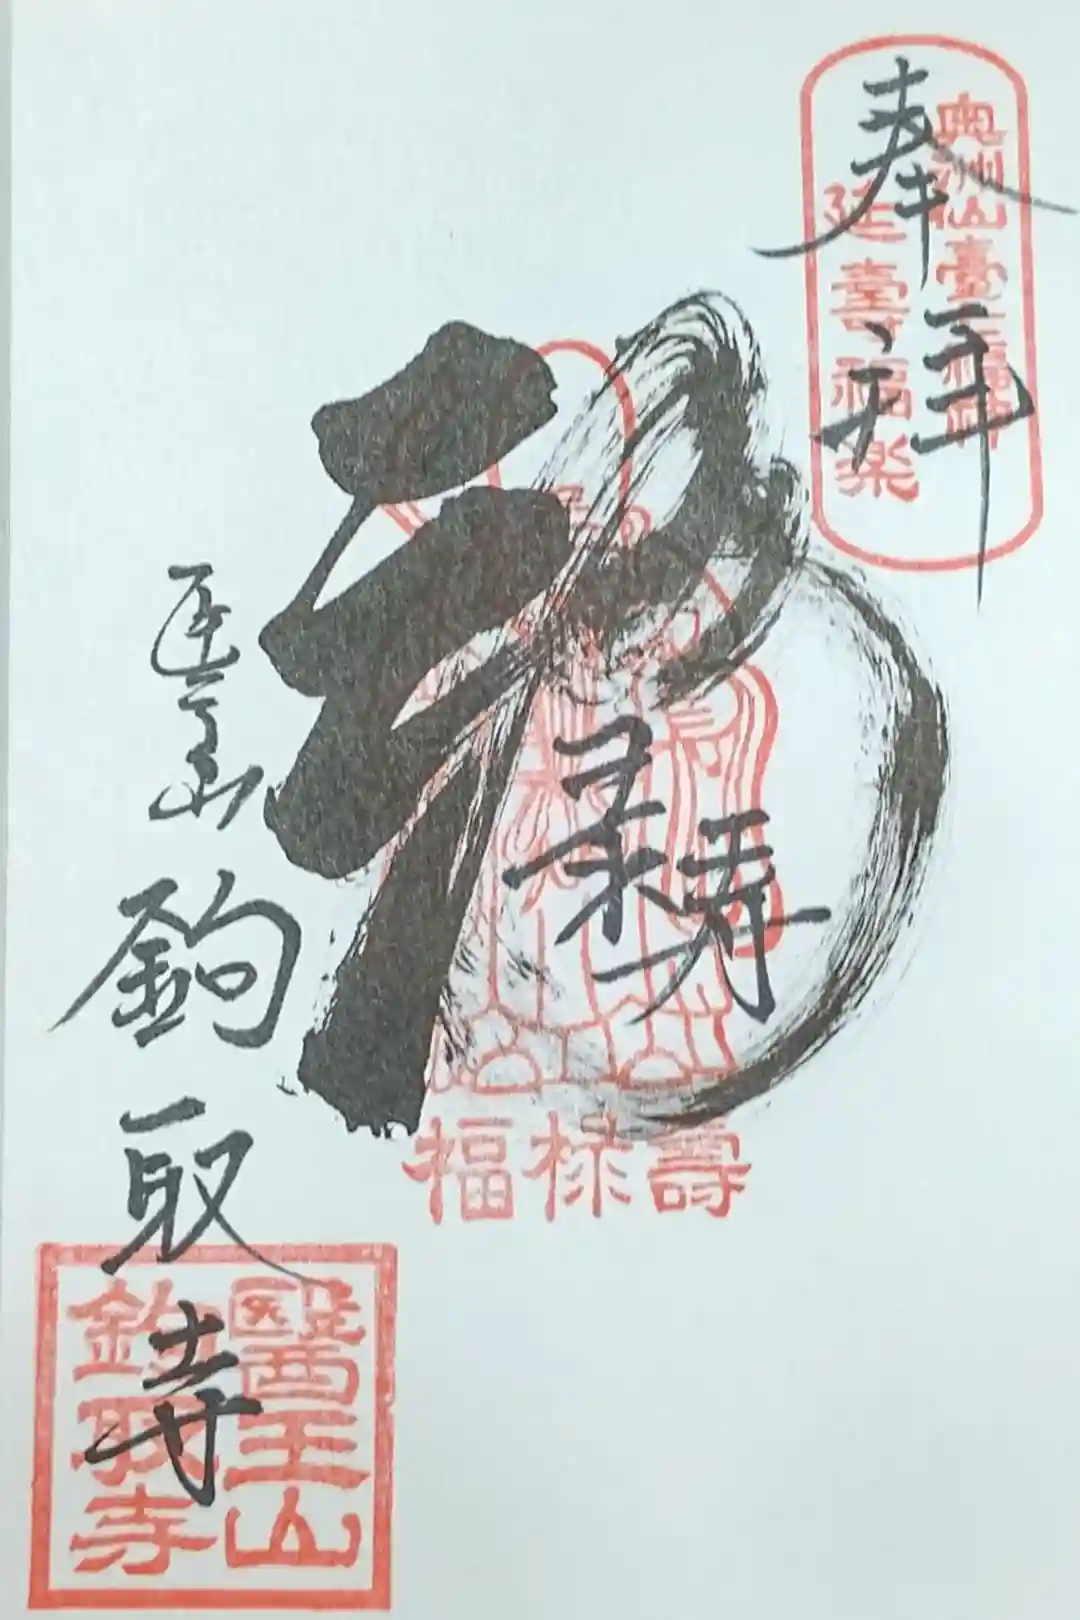 奉拝
奥州仙臺七福神
延壽福楽
福
禄寿
福禄壽
医王山
鉤取寺
醫王山
鉤取寺